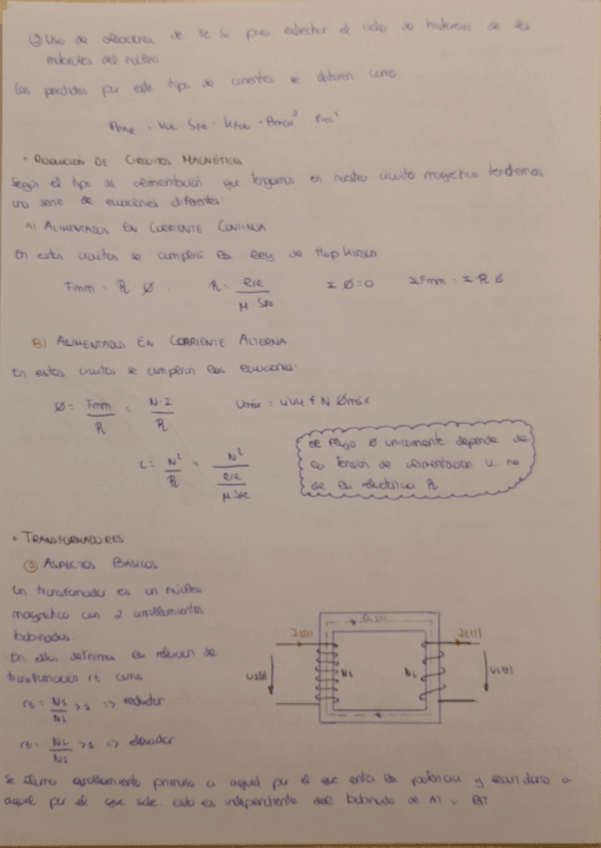 ② Uso de aleaciones de Fe Si para estrechar el ciclo de histéresis de los
materiales del núcleo.
Las perdidas por este tipo de corrientes se definen como:
• RESOLUCION DE CIRCUITOS MAGNÉTICOS
Según el tipo de alimentación que tengamos en nuestro circuito magnetico tendremos
una serie de ecuaciones diferentes
A) ALIMENTADOS EN CORRIENTE CONTINUA
En estos circuitos se cumplirá las leyes de Hopkinson
Fmm = R · Ø R = lFe / μ · SFe Σ Ø = 0 Σ Fmm = Σ R Ø
B) ALIMENTADOS EN CORRIENTE ALTERNA
En estos circuitos se cumplirán las ecuaciones:
Ø = Fmm / R = N · I / R Umáx = 4'44 f N Ømáx
L = N² / R = N² / lFe / μ SFe
El flujo Ø unicamente depende de
la tensión de alimentacion U. no
de la reluctancia R
• TRANSFORMADORES
① ASPECTOS BÁSICOS
Un transformador es un núcleo
magnético con 2 arrollamientos
bobinados.
En ellos definimos la relacion de
transformacion rt como
rt = N1 / N2 > 1 => reductor
rt = N2 / N1 > 1 => elevador
Ø(t)
I1(t) I2(t)
U1(t) N1 N2 U2(t)
Se llama arrollamiento primario a aquel por el que entra la potencia y secundario a
aquel por el que sale. esto es independiente del bobinado de AT y BT